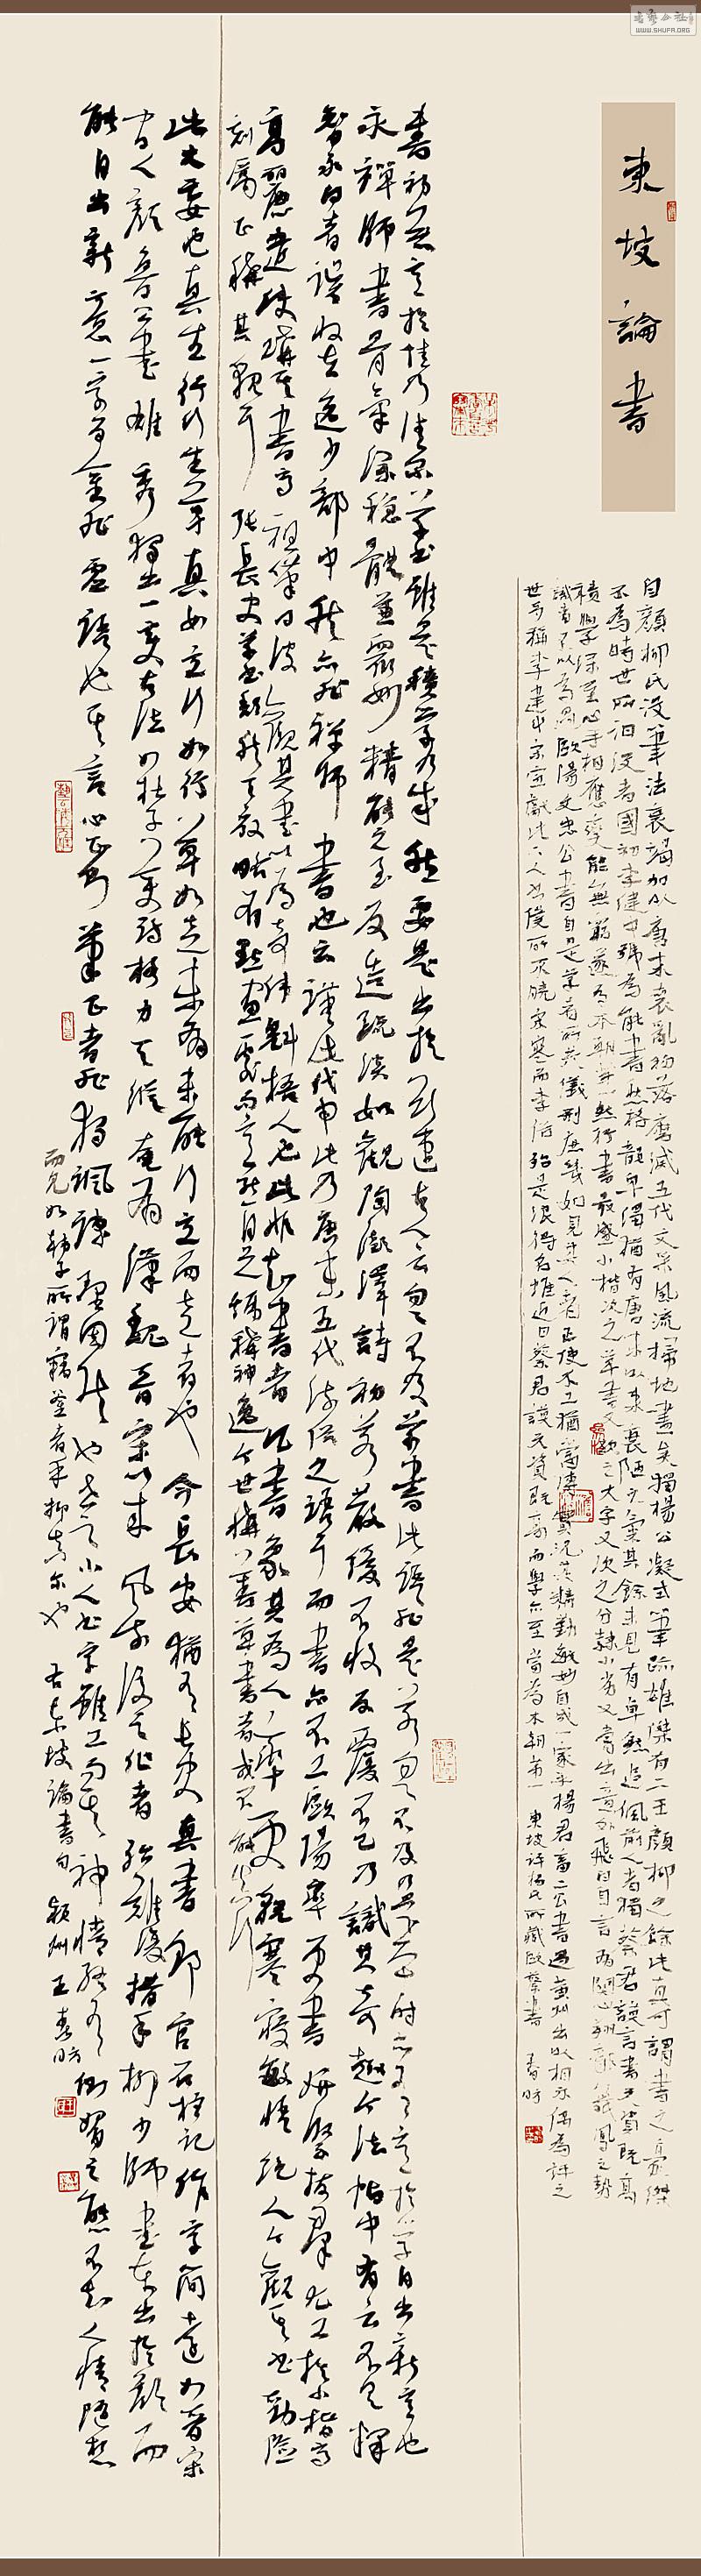 東坡論書
自顏柳氏沒筆法衰竭加以唐末喪亂人物落磨滅五代文采風流掃地盡矣獨楊公凝式筆跡雄傑有二王顏柳之餘此真可謂書之豪傑
不為時世所汩沒者國初李建中號為能書然格韻卑濁猶有唐末以來衰陋之氣其餘未見有卓然追佩前人者獨蔡君謨書天資既高
積學深至心手相應變態無窮遂為本朝第一然行書最盛小楷次之草書又次之大字又次之分隸小劣又嘗出意作飛白自言有翔龍舞鳳之勢
識者不以為過歐陽文忠公書自是學者所共儀刑庶幾如見其人者正使不工猶當傳寶況其精勤敏妙自成一家乎楊君畜二公書過黃州出以相示偶為評之
世多稱李建中宋宣獻此二人書僕所不曉宋寒而李俗殆是浪得名惟近日蔡君謨天資既高而學亦至當為本朝第一 東坡評楊氏所藏歐蔡書 春昉
書初無意於佳乃佳爾草書雖是積學乃成然要是出於欲速古人云匆匆不及草書此語非是若匆匆不及乃是平時亦有意於學自出新意也
永禪師書骨氣深穩體兼眾妙精能之至反造疏淡如觀陶彭澤詩初若散緩不收反覆不已乃識其奇趣今法帖中有云不具釋
智永白者誤收在逸少部中然亦非禪師書也云謹此代申此乃唐末五代流俗之語耳而書亦不工歐陽率更書妍緊拔群尤工於小楷高
高麗遣使購其書高祖嘆曰彼觀其書以為奇偉魁梧人也此非知書者凡書象其為人率更貌寒寢敏悟絕人今觀其書勁險
刻厲正稱其貌耳 張長史草書頹然天放略有點畫處而意態自足號稱神逸今世稱善草書者或不能真行
此大妄也真生行行生草真如立行如行草如走未有未能行立而能走者也今長安猶有長史真書郎官石柱記作字簡遠如晉宋
間人顏魯公書雄秀獨出一變古法如杜子美詩格力天縱奄有漢魏晉宋以來風流後之作者殆難復措手柳少師書本出於顏而
能自出新意一字百金非虛語也其言心正則筆正者非獨諷諫理固然也世之小人書字雖工而其神情終有睢盱側媚之態不知人情隨想
而見如韓子所謂竊斧者乎抑真爾也 右東坡論書句 潁州王春昉
WWW.SHUFA.ORG